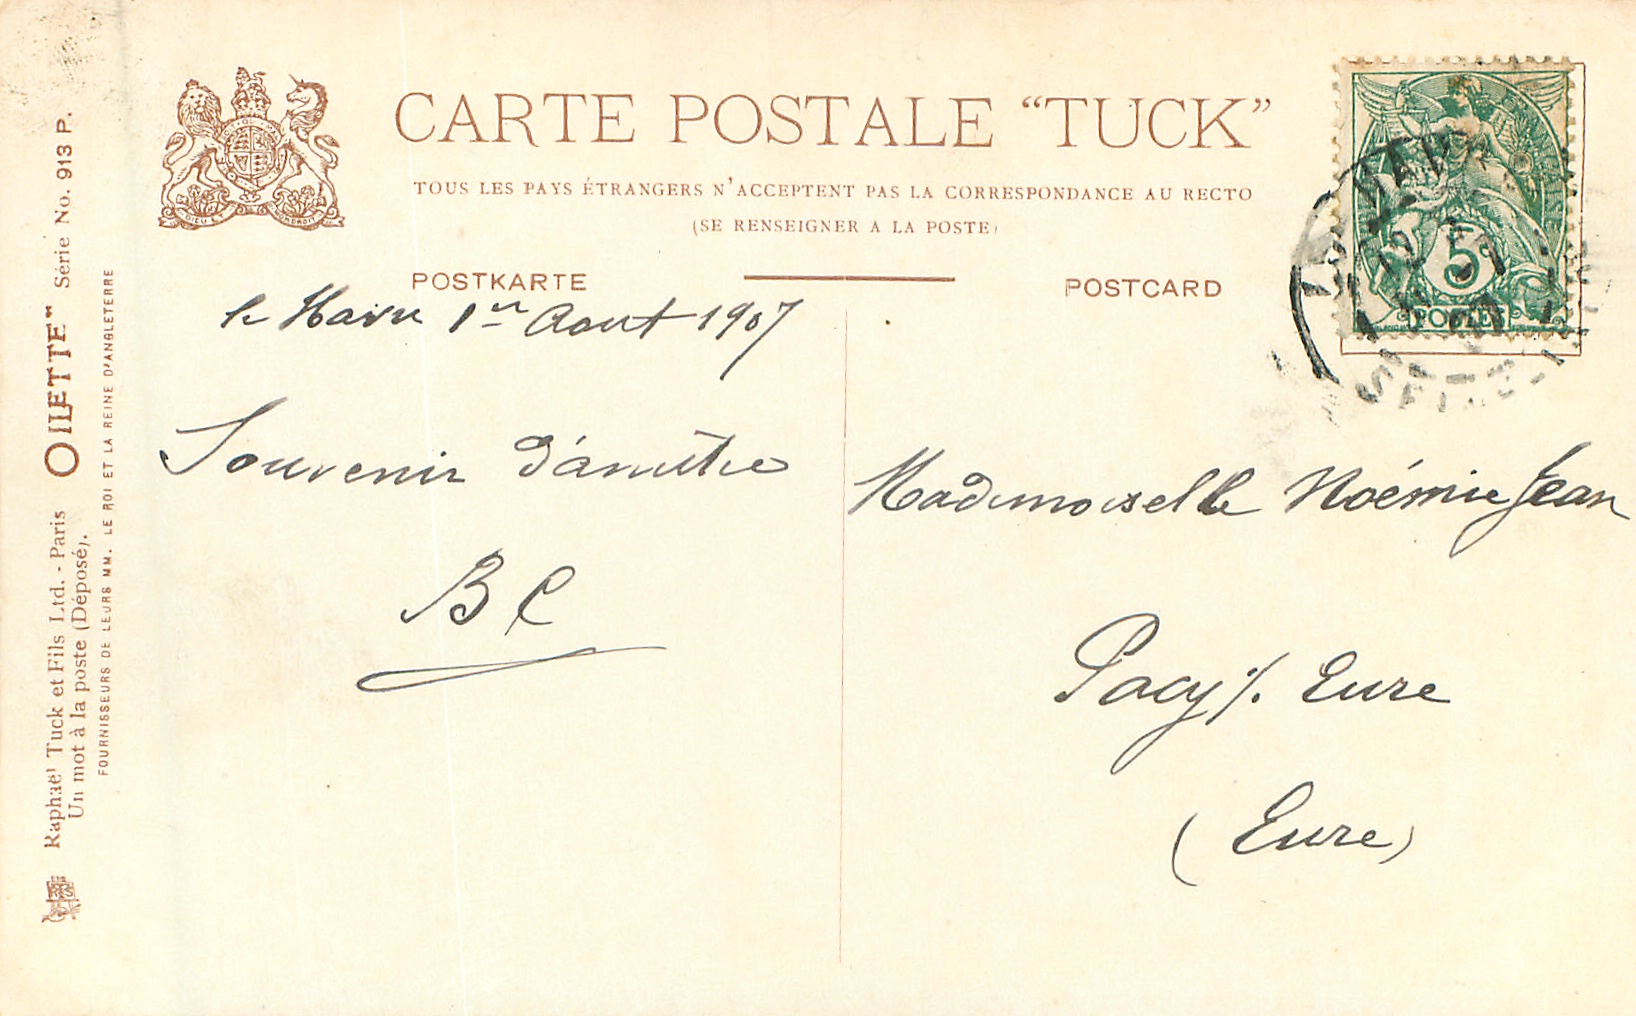 CARTE POSTALE “TUCK”
TOUS LES PAYS ÉTRANGERS N'ACCEPTENT PAS LA CORRESPONDANCE AU RECTO
(SE RENSEIGNER A LA POSTE)
POSTKARTE
POSTCARD
le Havre 1er Aout 1907
Souvenir d'amitié
B C
Mademoiselle Noémie Jean
Pacy s/. Eure
(Eure)
5
POSTES
Raphaël Tuck et Fils Ltd. - Paris OILETTE" Série No. 913 P.
Un mot à la poste (Déposé).
FOURNISSEURS DE LEURS MM. LE ROI ET LA REINE D'ANGLETERRE